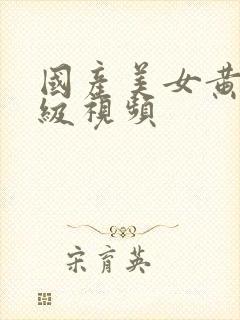 國產美女黃
級視頻
宋育英